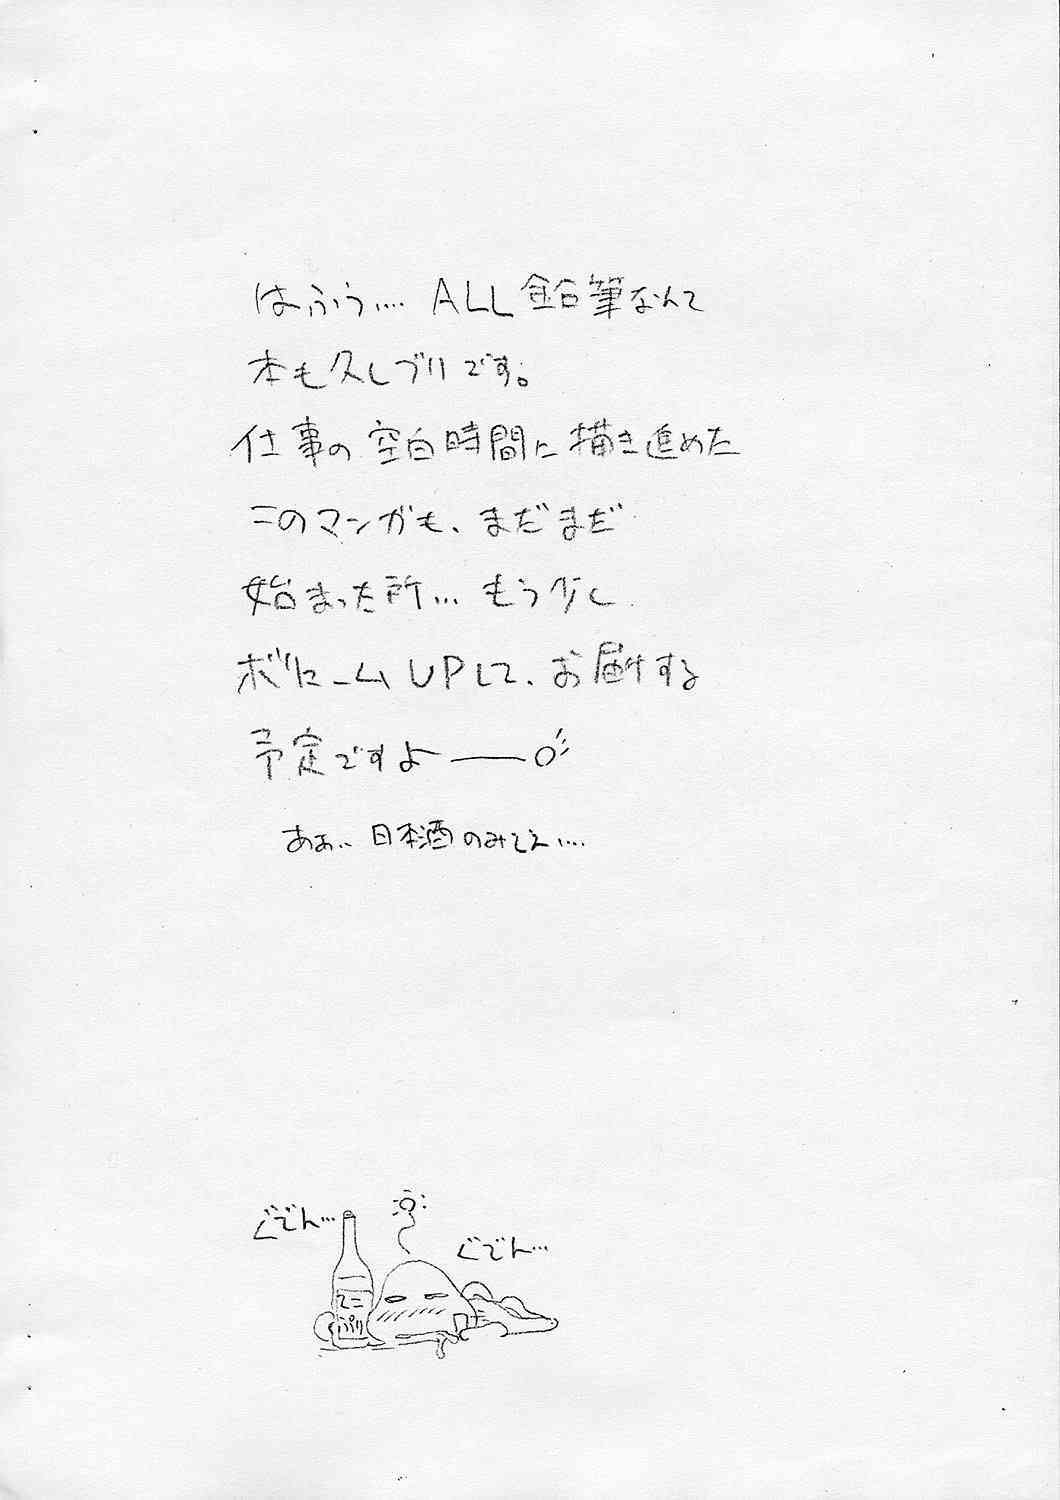 はふぅ.... ALL鉛筆なんて
本も久しブリです。
仕事の空白時間に描き進めた
このマンガも、まだまだ
始まった所... もう少し
ボリュームUPして、お届する
予定ですよ——○
ああ、日本酒のみてえ....
ぐでん...
ぐでん...